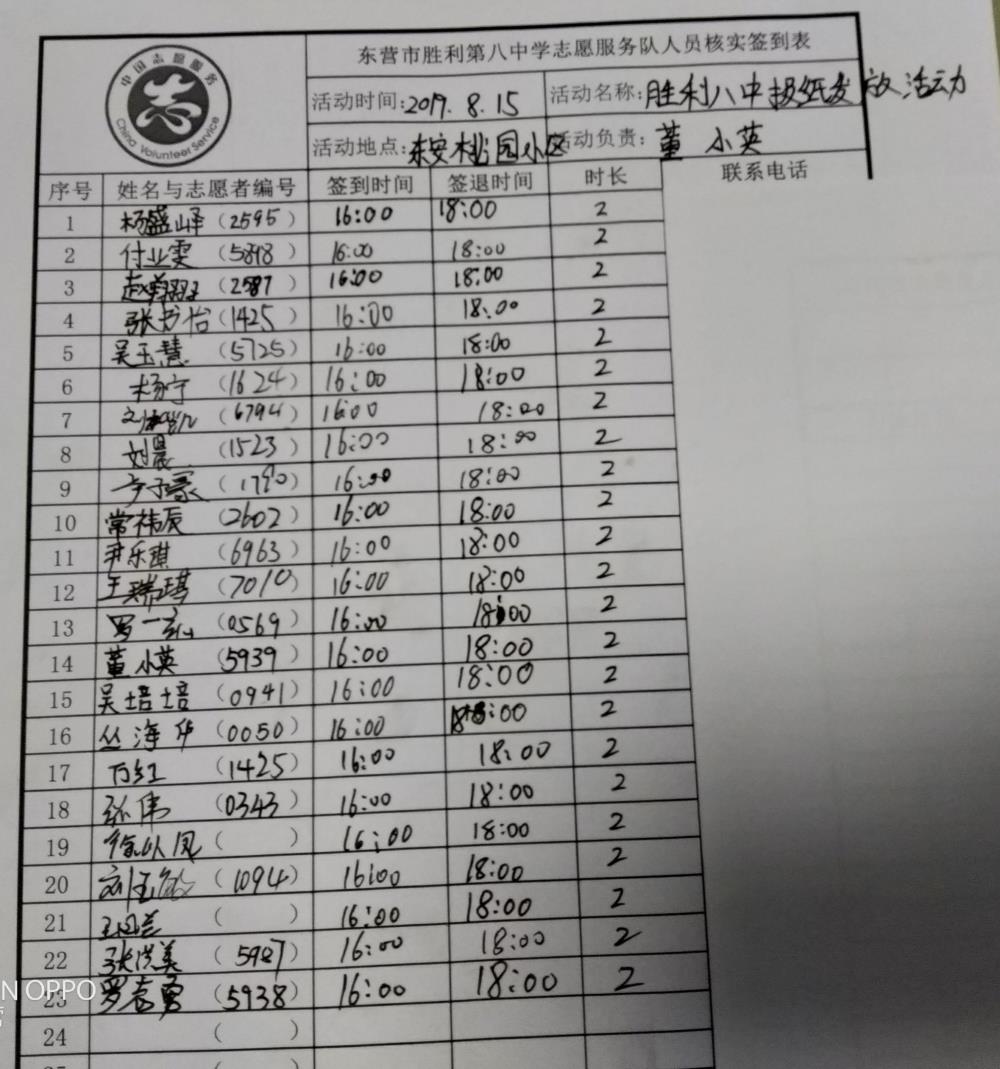 中国志愿服务
志
China Volunteer Service
东营市胜利第八中学志愿服务队人员核实签到表
活动时间:2019.8.15 活动名称:胜利八中报纸发放活动
活动地点:东安桃园小区 活动负责:董小英
序号 姓名与志愿者编号 签到时间 签退时间 时长 联系电话
1 杨盛峄(2595) 16:00 18:00 2
2 付业雯(5898) 16:00 18:00 2
3 (2587) 16:00 18:00 2
4 张书怡(1425) 16:00 18:00 2
5 吴玉慧(5725) 16:00 18:00 2
6 杨宁(1624) 16:00 18:00 2
7 (6794) 16:00 18:00 2
8 刘晨(1523) 16:00 18:00 2
9 (1790) 16:00 18:00 2
10 常祎辰(2602) 16:00 18:00 2
11 尹乐琪(6963) 16:00 18:00 2
12 王瑞琪(7010) 16:00 18:00 2
13 罗一(0569) 16:00 18:00 2
14 董小英(5939) 16:00 18:00 2
15 吴培培(0941) 16:00 18:00 2
16 丛海华(0050) 16:00 18:00 2
17 万红(1425) 16:00 18:00 2
18 张伟(0343) 16:00 18:00 2
19 ( ) 16:00 18:00 2
20 刘玉敏(1094) 16:00 18:00 2
21 ( ) 16:00 18:00 2
22 张洪美(5987) 16:00 18:00 2
23 罗春勇(5938) 16:00 18:00 2
N OPPO
24 ( )